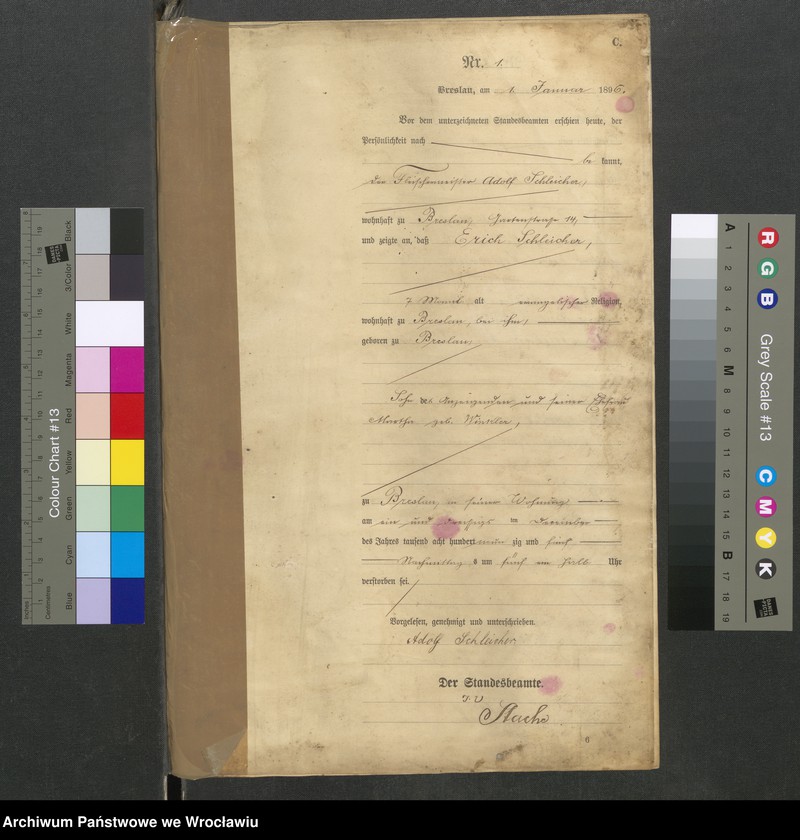 C.
Nr. 1.
Breslau, am 1. Januar 1896.
Vor dem unterzeichneten Standesbeamten erschien heute, der
Persönlichkeit nach
be kannt,
der Fleischermeister Adolf Schleicher,
wohnhaft zu Breslau, Gartenstraße 14,
und zeigte an, daß Erich Schleicher,
7 Monat alt evangelischer Religion,
wohnhaft zu Breslau, bei ihm,
geboren zu Breslau,
Sohn des Anzeigenden und seiner Ehefrau
Martha geb. Winkler,
zu Breslau, in seiner Wohnung
am ein und dreißigs ten Dezember
des Jahres tausend acht hundert neun zig und fünf
Nachmittags um fünf ein halb Uhr
verstorben sei.
Vorgelesen, genehmigt und unterschrieben.
Adolf Schleicher
Der Standesbeamte.
I. V.
6
Colour Chart #13
Black
3/Color
White
Magenta
Red
Yellow
Green
Cyan
Blue
Inches
Centimetres
Grey Scale #13
R
G
B
C
M
Y
K
A 1 2 3 4 5 6 M 8 9 10 11 12 13 14 15 B 17 18 19
Archiwum Państwowe we Wrocławiu